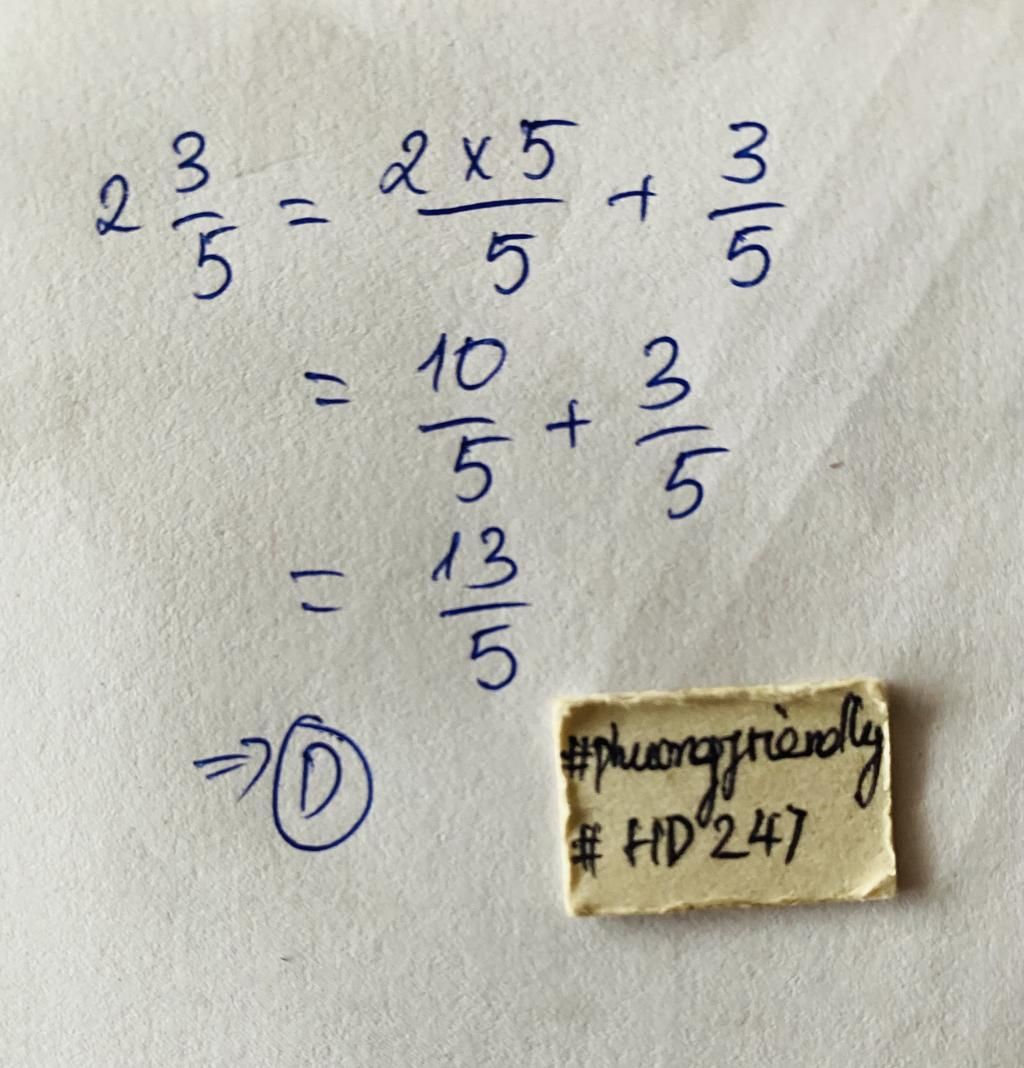 2 3/5 = 2 x 5/5 + 3/5
= 10/5 + 3/5
= 13/5
=> D
#phuongfriendly
# HD247